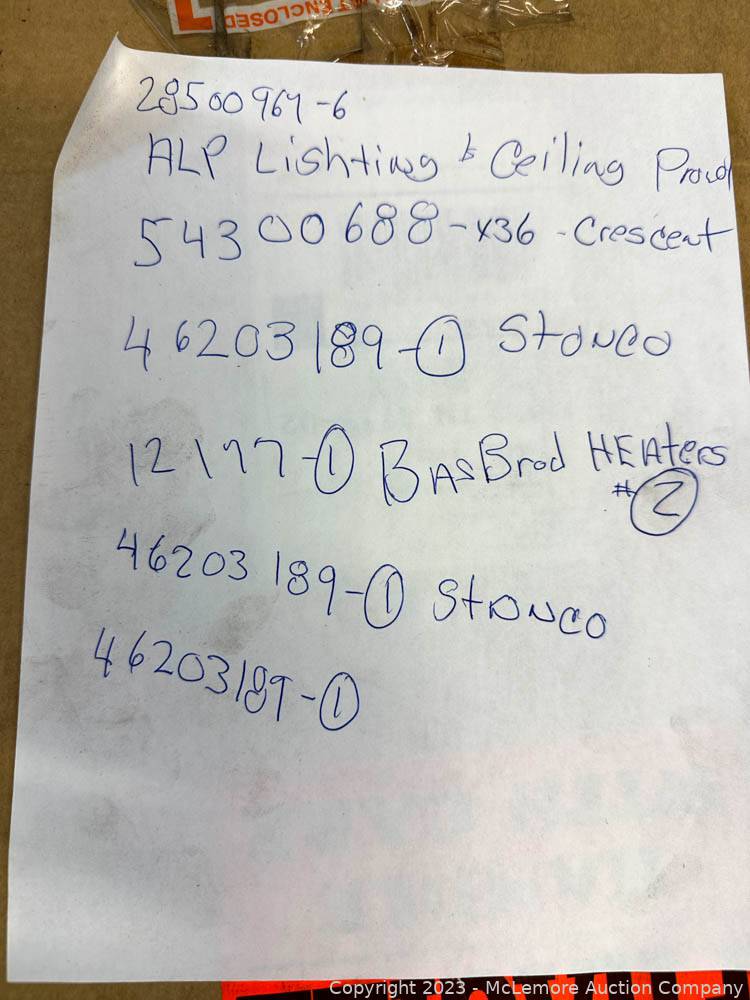 ENCLOSED
28500964-6
ALP Lishting & Ceiling Prod
54300688-x36 - Crescent
46203189-① Stonco
12177-① BasBrod HEAters
#②
46203 189-① Stonco
46203189-①
Copyright 2023 - McLemore Auction Company